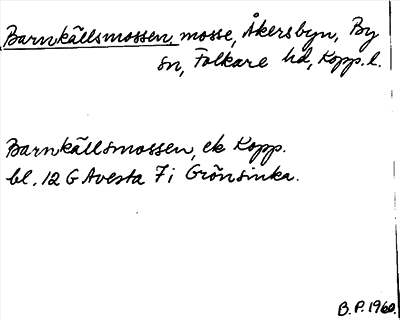 Barnkällsmossen, mosse, Åkersbyn, By
sn, Folkare hd, Kopp. l.
Barnkällsmossen, ek Kopp.
bl. 12 G Avesta 7 i Grönsinka.
B. P. 1960.